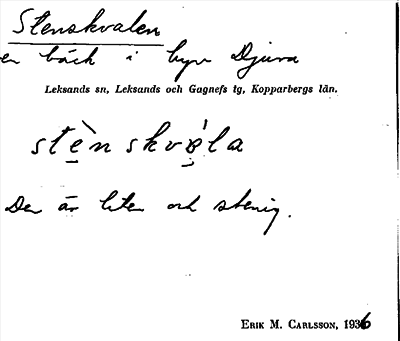 Stenskvalen
en bäck i byn Djura
Leksands sn, Leksands och Gagnefs tg, Kopparbergs län.
stèn skvǿla
Den är liten och stenig.
Erik M. Carlsson, 1936